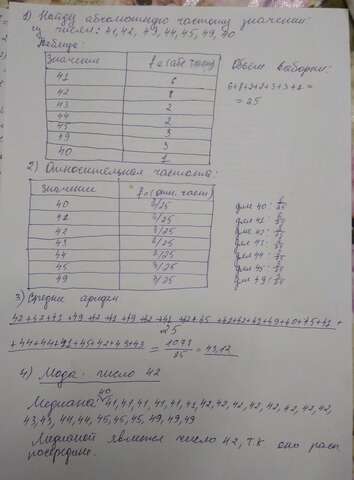 1) Найду абсолютную частоту значений
из чисел: 41, 42, 43, 44, 45, 49, 40
Таблица:
Значение
41 6
42 8
43 2
44 2
45 3
49 3
40 1
Объем выборки:
6+8+2+2+3+3+1=
= 25
2) Относительная частота:
Значение
40 1/25
41 6/25
42 8/25
43 2/25
44 2/25
45 3/25
49 3/25
для 40:
для 41:
для 42:
для 43:
для 44:
для 45:
для 49:
3) Среднее арифм
25
+44+44+41+45+42+49+43 = 1078/25 = 43,12
4) Мода - число 42
40
Медиана: 41, 41, 41, 41, 41, 41, 42, 42, 42, 42, 42, 42, 42, 42,
43, 43, 44, 44, 45, 45, 45, 49, 49, 49
Медианой является число 42, т.к оно расп.
посередине.